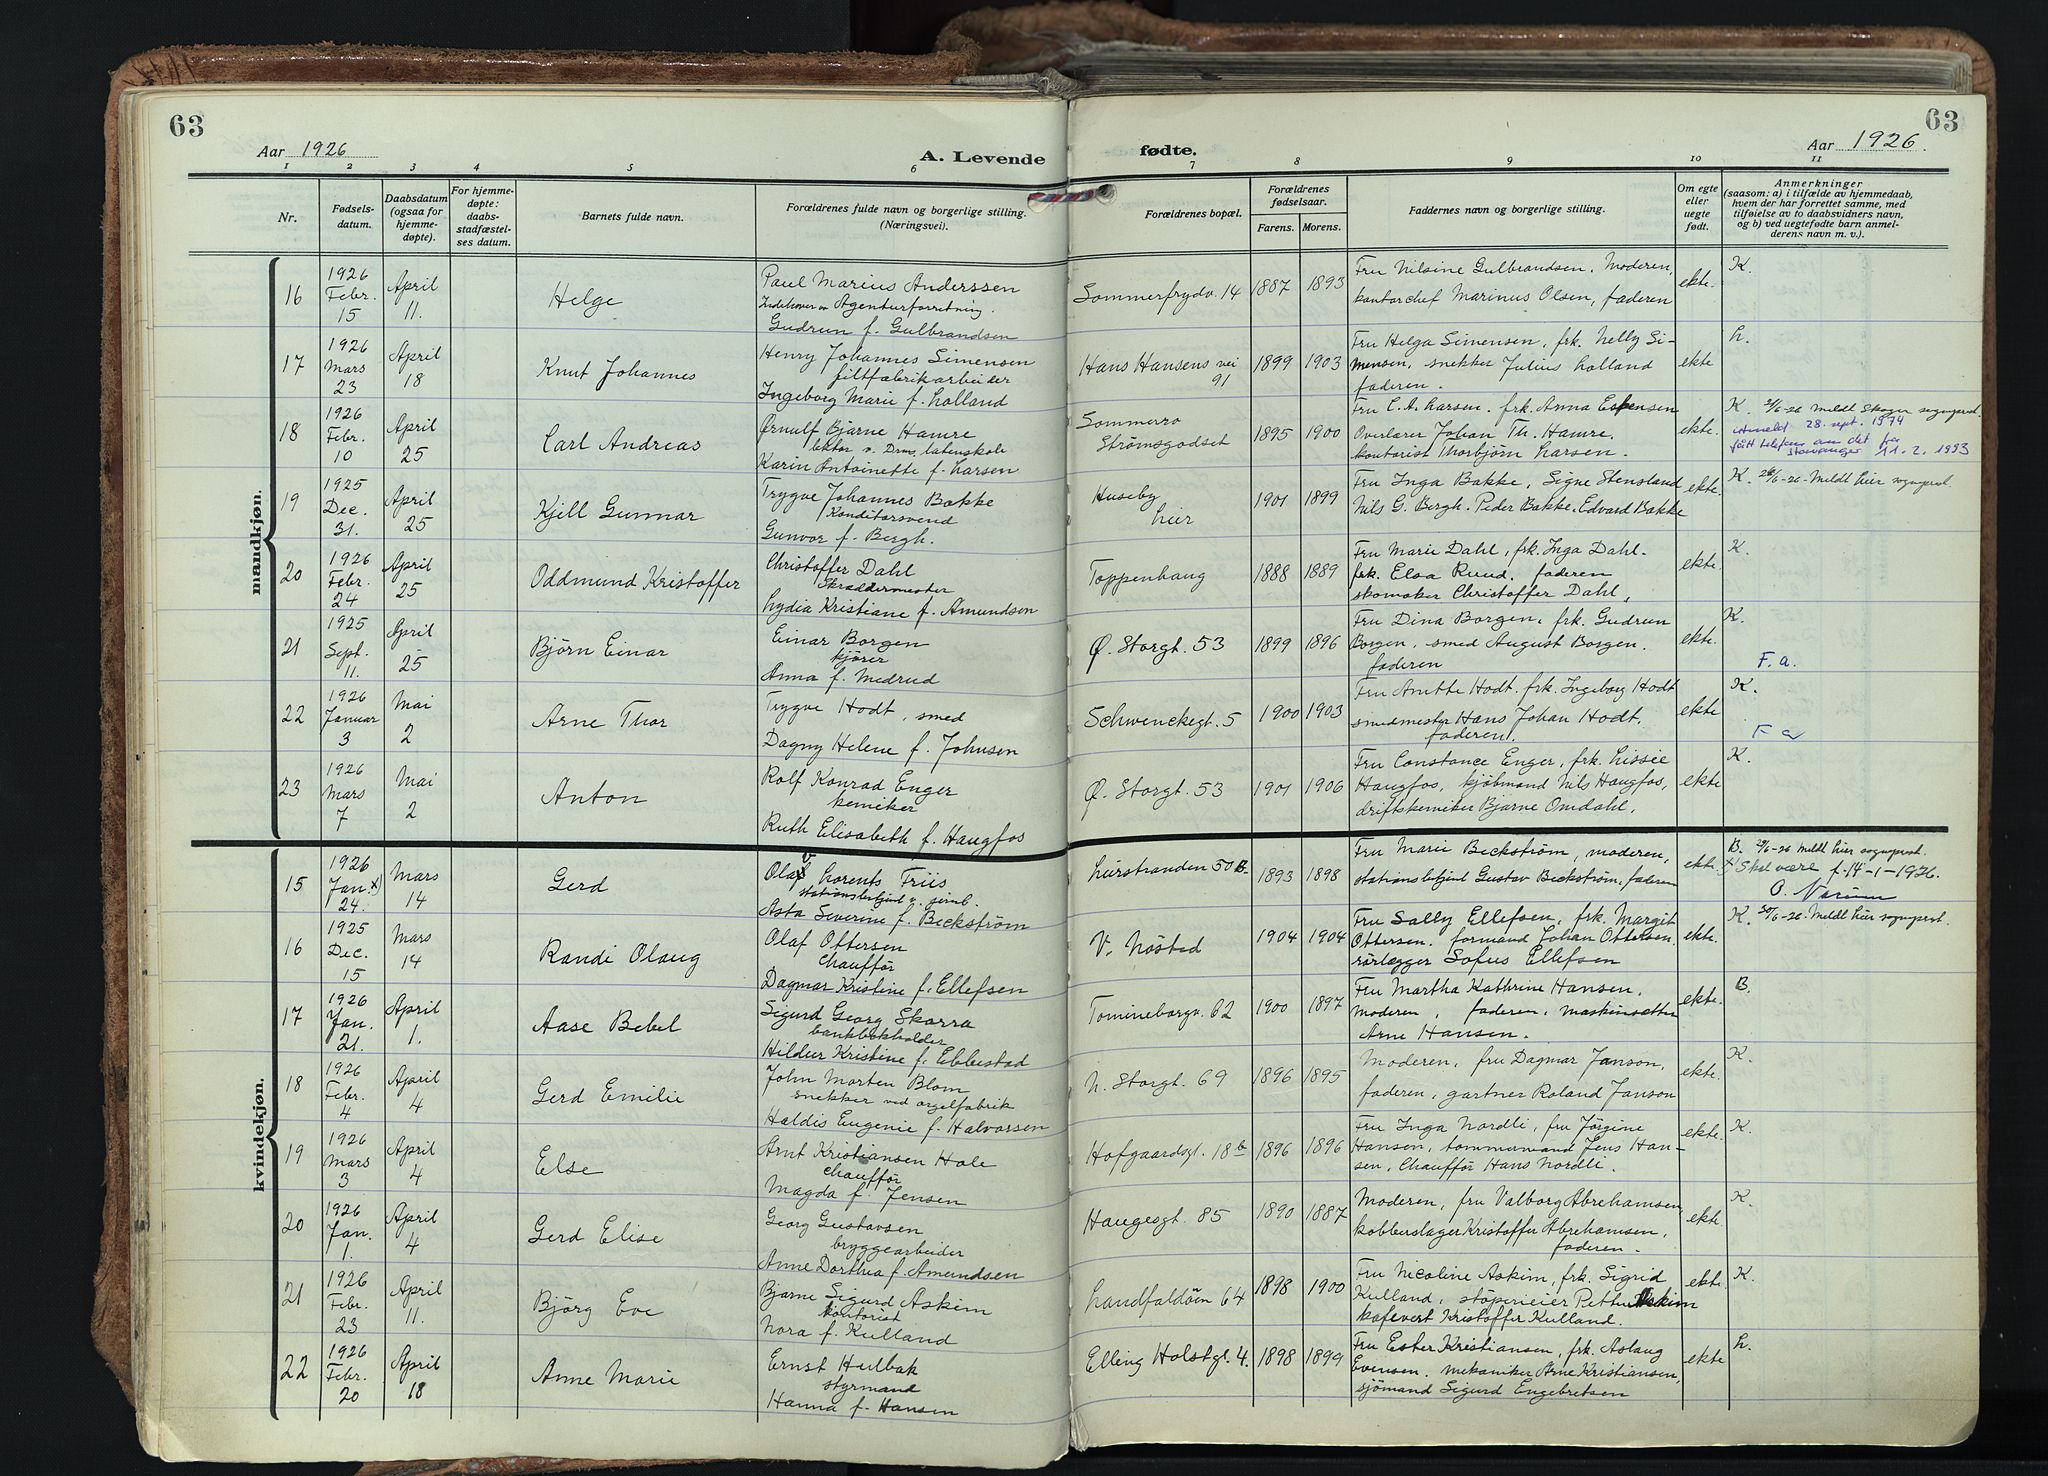 63
63
Aar 1926
A. Levende
fødte.
Aar 1926.
1 2 3 4 5 6 7 8 9 10 11
Nr.
Fødsels-
datum.
Daabsdatum
(ogsaa for
hjemme-
døpte).
For hjemme-
døpte:
daabs-
stadfæstel-
ses datum.
Barnets fulde navn.
Forældrenes fulde navn og borgerlige stilling.
(Næringsvei).
Forældrenes bopæl.
Forældrenes
fødselsaar.
Farens. Morens.
Faddernes navn og borgerlige stilling.
Om egte
eller
uegte
født.
Anmerkninger
(saasom: a) i tilfælde av hjemmedaab,
hvem der har forrettet samme, med
tilføielse av to daabsvidners navn,
og b) ved uegtefødte barn anmel-
derens navn m. v.).
mandkjøn.
16
1926
Febr.
15
April
11.
Helge
Paul Marius Anderssen
Indehaver av Agenturforretning.
Gudrun f. Gulbrandsen
Sommerfrydv. 14
1887 1893
Fru Nilsine Gulbrandsen. Moderen,
kontorchef Marinus Olsen, faderen
ekte.
K.
17
1926
Mars
23
April
18
Knut Johannes
Henry Johannes Simensen
filtfabrikarbeider
Ingeborg Marie f. Lolland
Hans Hansens vei
91
1899 1903
Fru Helga Simensen, frk. Nelly Si-
mensen, snekker Julius Lolland
faderen.
ekte
L.
18
1926
Febr.
10
April
25
Carl Andreas
Ørnulf Bjarne Hamre
lektor v. Drms. latenskole
Karin Antoinette f. Larsen
Sommerro
Strømsgodset
1895 1900
Fru C. A. Larsen. frk. Anna Espensen
Overlærer Johan Th. Hamre.
kontorist Thorbjørn Larsen.
ekte.
K. 21/6-26 Meldt Skoger sogneprest
Utmeldt 28. sept. 1974
fått telefon om det fra
Stavanger 11. 2. 1993
19
1925
Dec.
31.
April
25
Kjell Gunnar
Trygve Johannes Bakke
Konditorsvend
Gunvor f. Bergh.
Huseby
Lier
1901 1899
Fru Inga Bakke, Signe Stensland
Nils G. Bergh. Peder Bakke. Edvard Bakke
ekte
K. 26/6-26- Meldt Lier sogneprest.
20
1926
Febr.
24
April
25
Oddmund Kristoffer
Christoffer Dahl
Skræddermester
Lydia Kristiane f. Amundsen
Toppenhaug
1888 1889
Fru Marie Dahl, frk. Inga Dahl.
frk. Elsa Ruud. faderen
skomaker Christoffer Dahl,
ekte.
K.
21
1925
Sept.
11.
April
25
Bjørn Einar
Einar Borgen
kjører
Anna f. Medrud
Ø. Storgt. 53
1899 1896
Fru Dina Borgen, frk. Gudrun
Borgen, smed August Borgen.
faderen
ekte.
K.
F. a.
22
1926
Januar
3
Mai
2
Arne Thor
Trygve Hodt, smed
Dagny Helene f. Johnsen
Schwenckegt. 5
1900 1903
Fru Anette Hodt. frk. Ingeborg Hodt
smedmester Hans Johan Hodt.
faderen.
ekte
K.
F a
23
1926
Mars
7
Mai
2
Anton
Rolf Konrad Enger
kemiker
Ruth Elisabeth f. Haugfos
Ø. Storgt. 53
1901 1906
Fru Constance Enger, frk. Lissie
Haugfos, kjøbmand Nils Haugfos,
driftskemiker Bjarne Omdahl.
ekte
K.
kvindekjøn.
15
1926
Jan. x)
24.
Mars
14
Gerd
Olav Lorents Friis
stationsbetjent v. jernb.
Asta Severine f. Beckstrøm
Lierstranden 50 B.
1893 1898
Fru Marie Beckstrøm, moderen,
stationsbetjent Gustav Beckstrøm, faderen
ekte.
B. 29/6-26 Meldt Lier sogneprest.
x Skal være f. 14-1-1926.
O. Narum
16
1925
Dec.
15
Mars
14
Randi Olaug
Olaf Ottersen
Chauffør
Dagmar Kristine f. Ellefsen
V. Nøsted
1904 1904
Fru Sally Ellefsen, frk. Margit
Ottersen. formand Johan Ottersen.
rørlægger Sofus Ellefsen
ekte.
K. 30/6-26. Meldt Lier sogneprest.
17
1926
Jan.
21.
April
1.
Aase Bebel
Sigurd Georg Skorra
bankbokholder
Hildur Kristine f. Ebbestad
Tomineborgv. 62
1900 1897
Fru Martha Kathrine Hansen.
Moderen, faderen, maskinsætter
Arne Hansen.
ekte.
B.
18
1926
Febr.
4
April
4
Gerd Emilie
John Morten Blom
snekker ved orgelfabrik
Haldis Eugenie f. Halvorsen
N. Storgt. 69
1896 1895
Moderen, fru Dagmar Janson,
faderen, gartner Roland Janson
ekte.
K.
19
1926
Mars
3
April
4
Else
Arnt Kristiansen Hole
Chauffør
Magda f. Jensen
Hofgaardsgt. 18 b
1896 1896
Fru Inga Nordli, fru Jørgine
Hansen, tømmermand Jens Han-
sen, Chauffør Hans Nordli.
ekte.
K.
20
1926
Jan.
1.
April
4
Gerd Elise
Georg Gustavsen
bryggearbeider
Anne Dorthea f. Amundsen
Haugesgt. 85
1890 1887
Moderen, fru Valborg Abrahamsen
kobberslager Kristoffer Abrahamsen,
faderen.
ekte.
K.
21
1926
Febr.
23
April
11.
Bjørg Eve
Bjarne Sigurd Askim
kontorist
Nora f. Kulland
Landfaldøen 64
1898 1900
Fru Nicoline Askim, frk. Sigrid
Kulland, støperieier Petter Askim
kafevert Kristoffer Kulland.
ekte
K.
22
1926
Febr.
20
April
18
Anne Marie
Ernst Hulbak
styrmand
Hanna f. Hansen
Elling Holstgt. 4.
1898 1899
Fru Ester Kristiansen, frk. Aslaug
Evensen. mekaniker Arne Kristiansen,
sjømand Sigurd Engebretsen
ekte
L.